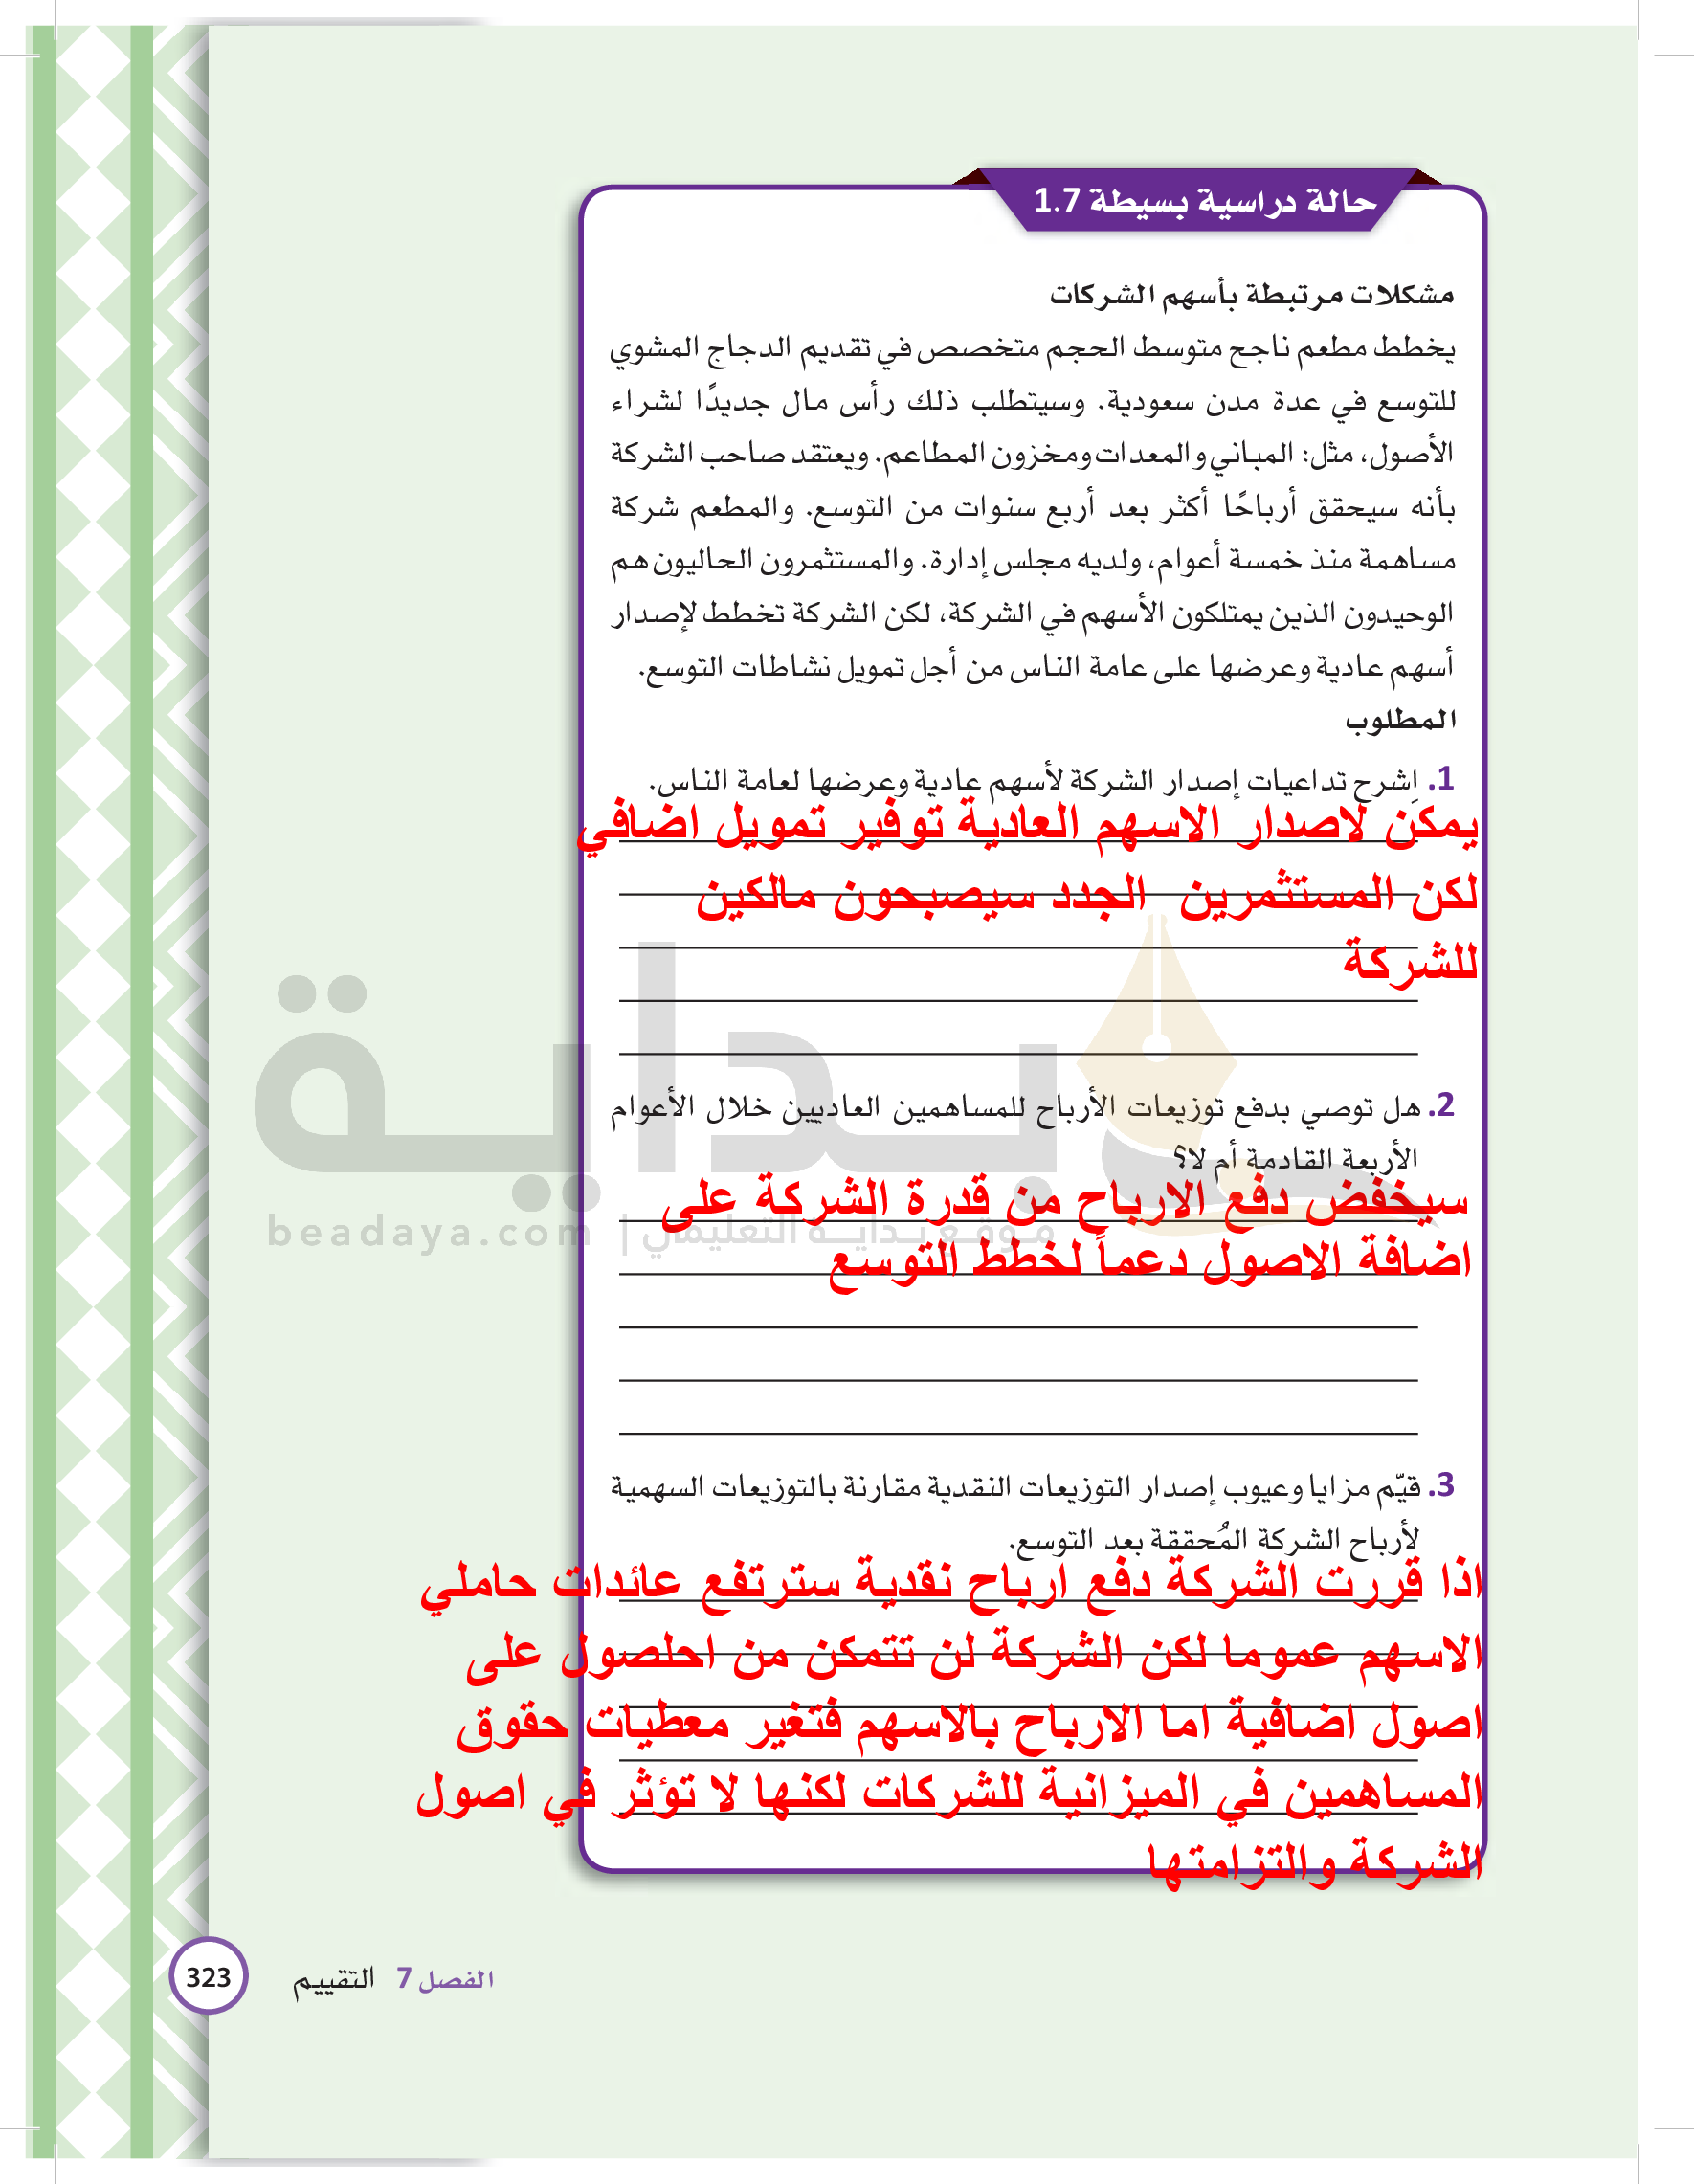 حالة دراسية بسيطة 1.7
مشكلات مرتبطة بأسهم الشركات
يخطط مطعم ناجح متوسط الحجم متخصص في تقديم الدجاج المشوي
للتوسع في عدة مدن سعودية. وسيتطلب ذلك رأس مال جديدًا لشراء
الأصول، مثل: المباني والمعدات ومخزون المطاعم. ويعتقد صاحب الشركة
بأنه سيحقق أرباحًا أكثر بعد أربع سنوات من التوسع. والمطعم شركة
مساهمة منذ خمسة أعوام، ولديه مجلس إدارة. والمستثمرون الحاليون هم
الوحيدون الذين يمتلكون الأسهم في الشركة، لكن الشركة تخطط لإصدار
أسهم عادية وعرضها على عامة الناس من أجل تمويل نشاطات التوسع.
المطلوب
1. اِشرح تداعيات إصدار الشركة لأسهم عادية وعرضها لعامة الناس.
يمكن لاصدار الاسهم العادية توفير تمويل اضافي
لكن المستثمرين الجدد سيصبحون مالكين
للشركة
بداية
2. هل توصي بدفع توزيعات الأرباح للمساهمين العاديين خلال الأعوام
الأربعة القادمة أم لا؟
سيخفض دفع الارباح من قدرة الشركة على
موقع بداية التعليمي | beadaya.com
اضافة الاصول دعماً لخطط التوسع
3. قيّم مزايا وعيوب إصدار التوزيعات النقدية مقارنة بالتوزيعات السهمية
لأرباح الشركة المُحققة بعد التوسع.
اذا قررت الشركة دفع ارباح نقدية سترتفع عائدات حاملي
الاسهم عموما لكن الشركة لن تتمكن من احلصول على
اصول اضافية اما الارباح بالاسهم فتغير معطيات حقوق
المساهمين في الميزانية للشركات لكنها لا تؤثر في اصول
الشركة والتزامتها
الفصل 7 التقييم
323